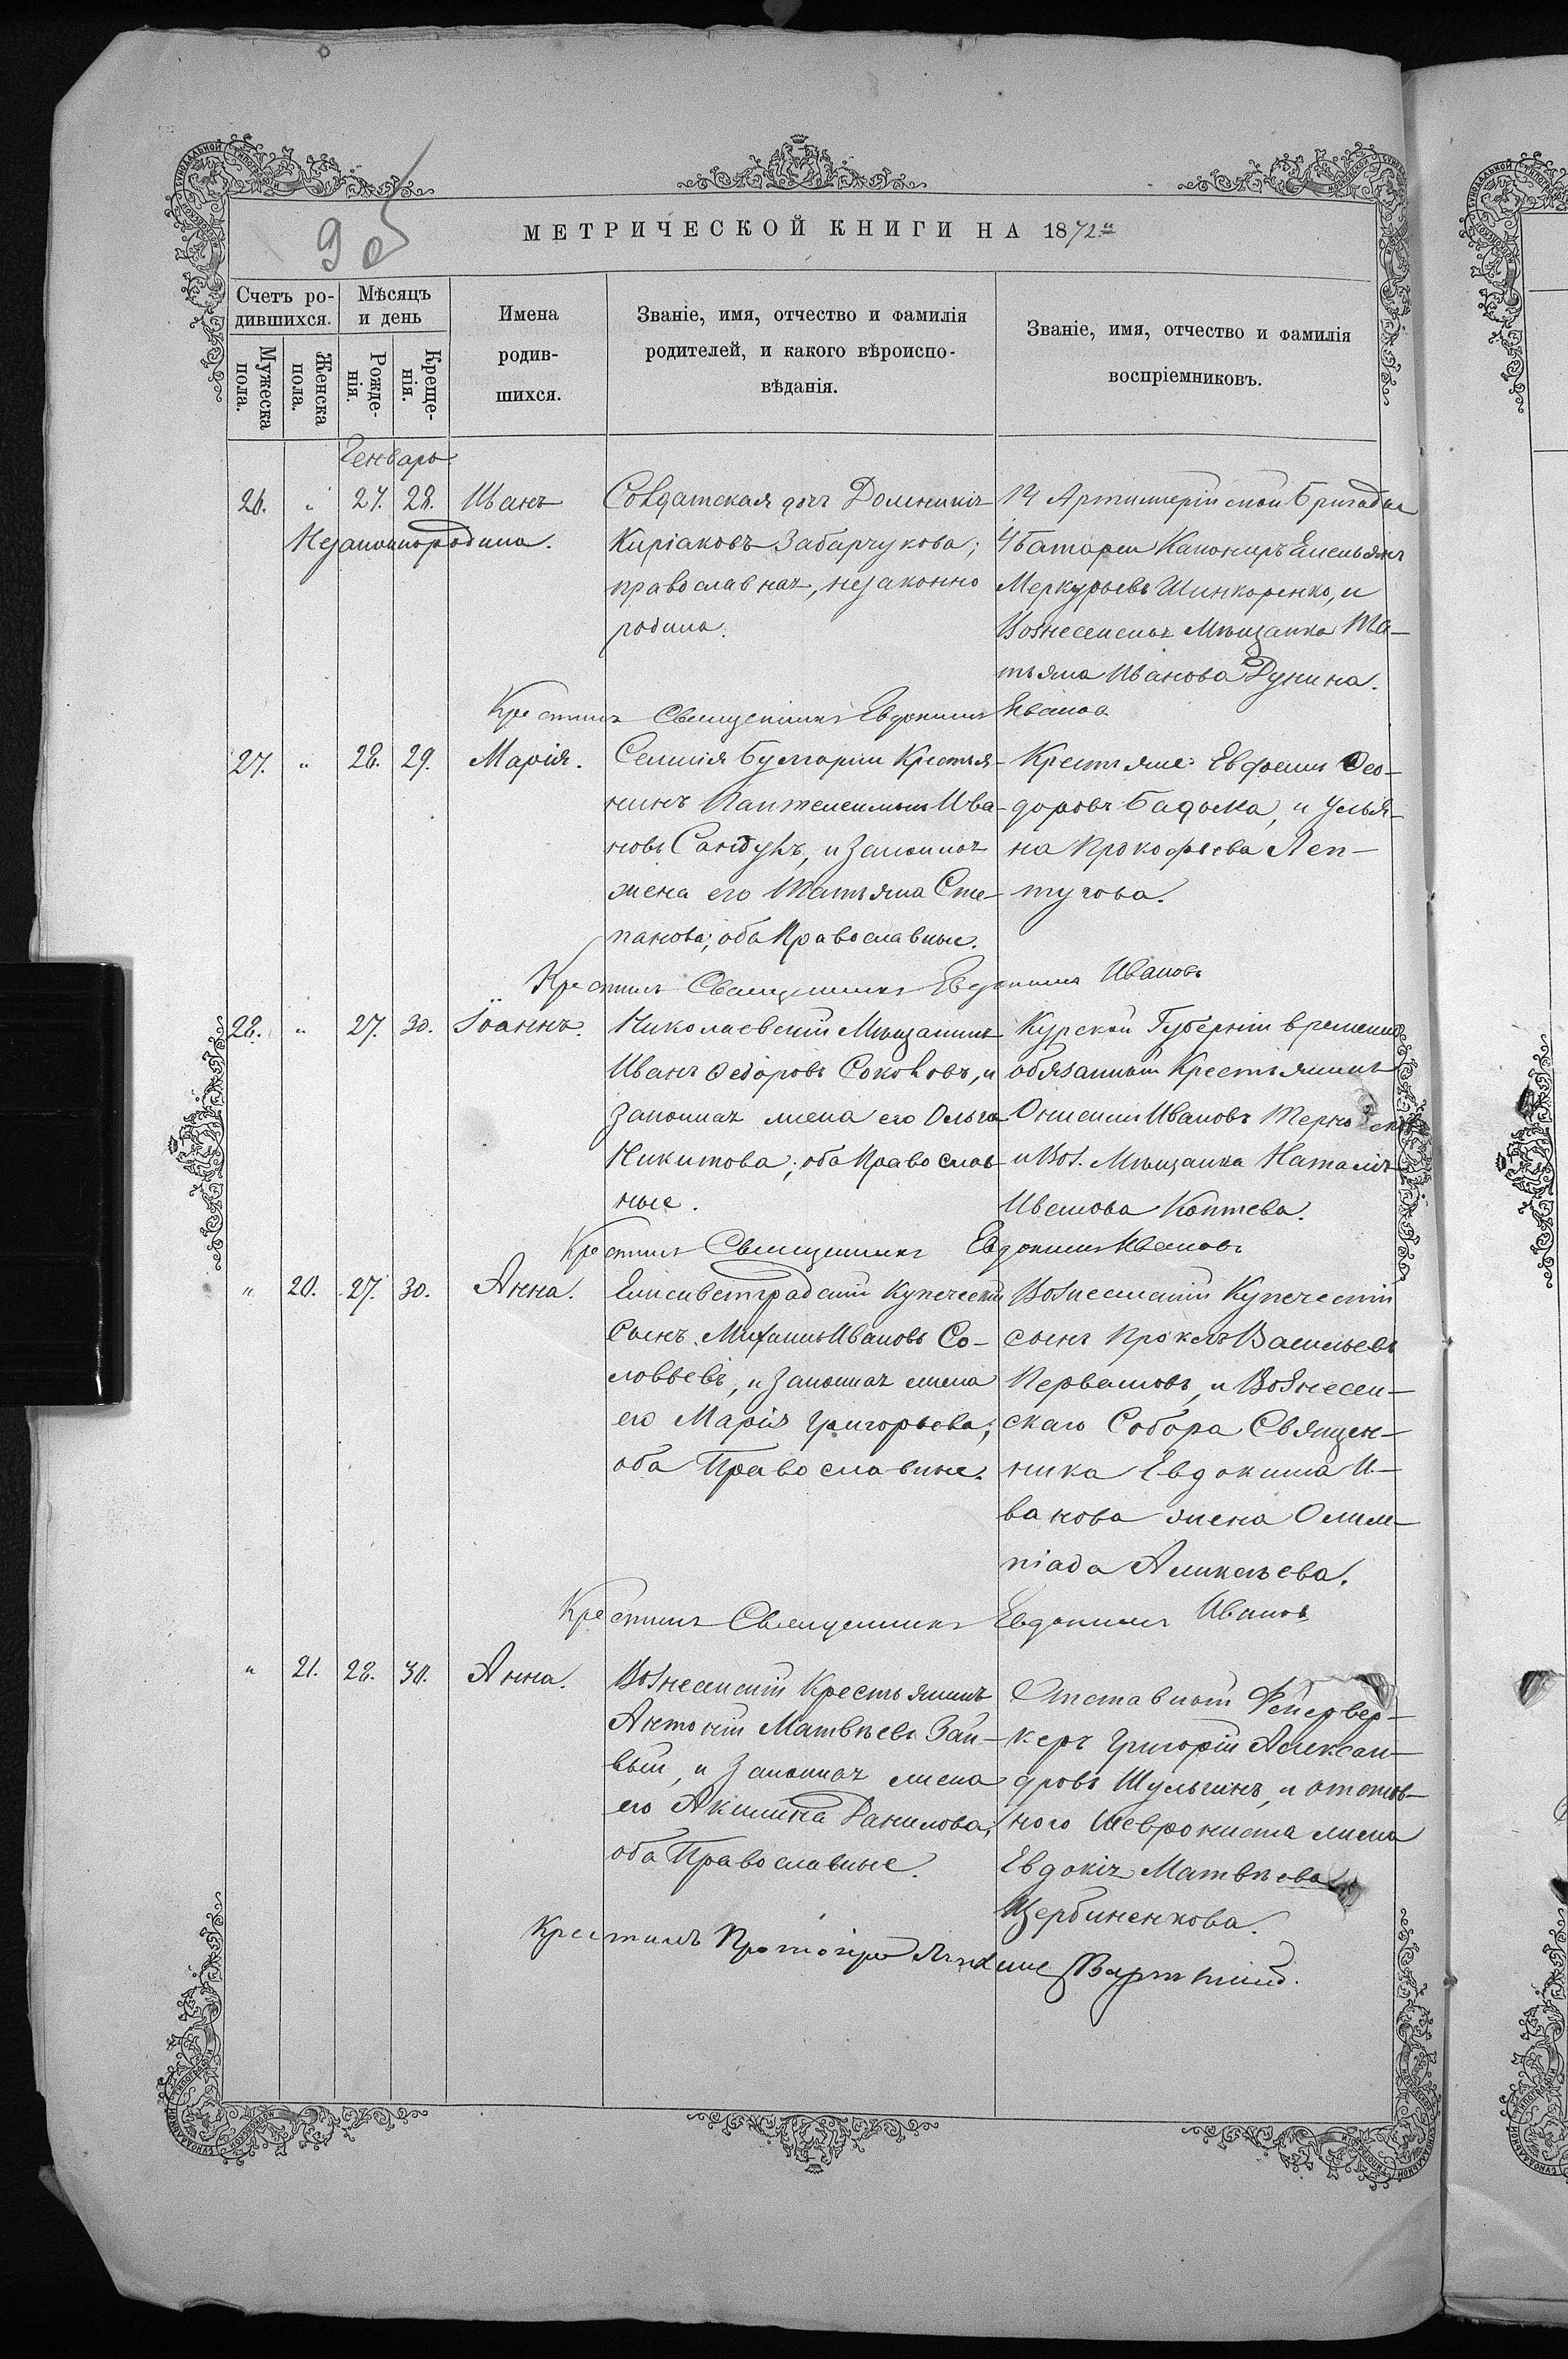 90
МЕТРИЧЕСКОЙ КНИГИ НА 1872
Счетъ ро-
дившихся.
Мужеска
пола.
Женска
пола.
Мѣсяцъ
и день
Рожде-
нія.
Креще-
нія.
Имена
родив-
шихся.
Званіе, имя, отчество и фамилія
родителей, и какого вѣроиспо-
вѣданія.
Званіе, имя, отчество и фамилія
воспріемниковъ.
Генварь
26. " 27. 28. Иванъ
Незаконнородила.
Солдатская дочь Домникія
Киріаковъ Забарчукова;
православная, незаконно
родила.
14 Артиллерійской Бригады
4 Батареи Канониръ Емельянъ
Меркурьевъ Шинкоренко, и
Вознесенская Мѣщанка Та-
тьяна Иванова Дунина.
Крестилъ Священникъ Евдокимъ Иванов
27. " 28. 29. Марія.
Селенія Булгарки Крестья-
нинъ Пантелеимонъ Ива-
новъ Сандулъ, и Законная
жена его Татьяна Сте-
панова; оба Православные.
Крестьяне: Евфимъ Ѳео-
доровъ Бадьма, и Улья-
на Прокофьева Леп-
тугова.
Крестилъ Священникъ Евдокимъ Ивановъ
28. " 27. 30. Іоаннъ.
Николаевскій Мѣщанинъ
Иванъ Ѳедоровъ Соколовъ, и
Законная жена его Ольга
Никитова; оба Православ-
ные.
Курской Губерніи временно
обязанный Крестьянинъ
Онисимъ Ивановъ
и Воз. Мѣщанка Наталія
Иванова Коптева.
Крестилъ Священникъ Евдокимъ Ивановъ
" 20. 27. 30. Анна.
Елисаветградскій Купеческій
Сынъ Михаилъ Ивановъ Со-
ловьевъ, и Законная жена
его Марія Григорьева;
оба Православные.
Вознесенскій Купеческій
сынъ Проклъ Васильевъ
Первашовъ, и Вознесен-
скаго Собора Священ-
ника Евдокима И-
ванова жена Олим-
піада Аникѣева.
Крестилъ Священникъ Евдокимъ Ивановъ
" 21. 28. 30. Анна.
Вознесенскій Крестьянинъ
Антоній Матвѣевъ Зай-
вый, и Законная жена
его Акилина Данилова;
оба Православные.
Отставной Фейервер-
керъ Григорій Алексан-
дровъ Шульгинъ, и отстав-
ного Шеврониста жена
Евдокія Матвѣева
Щербиненкова.
Крестилъ Протоіерей